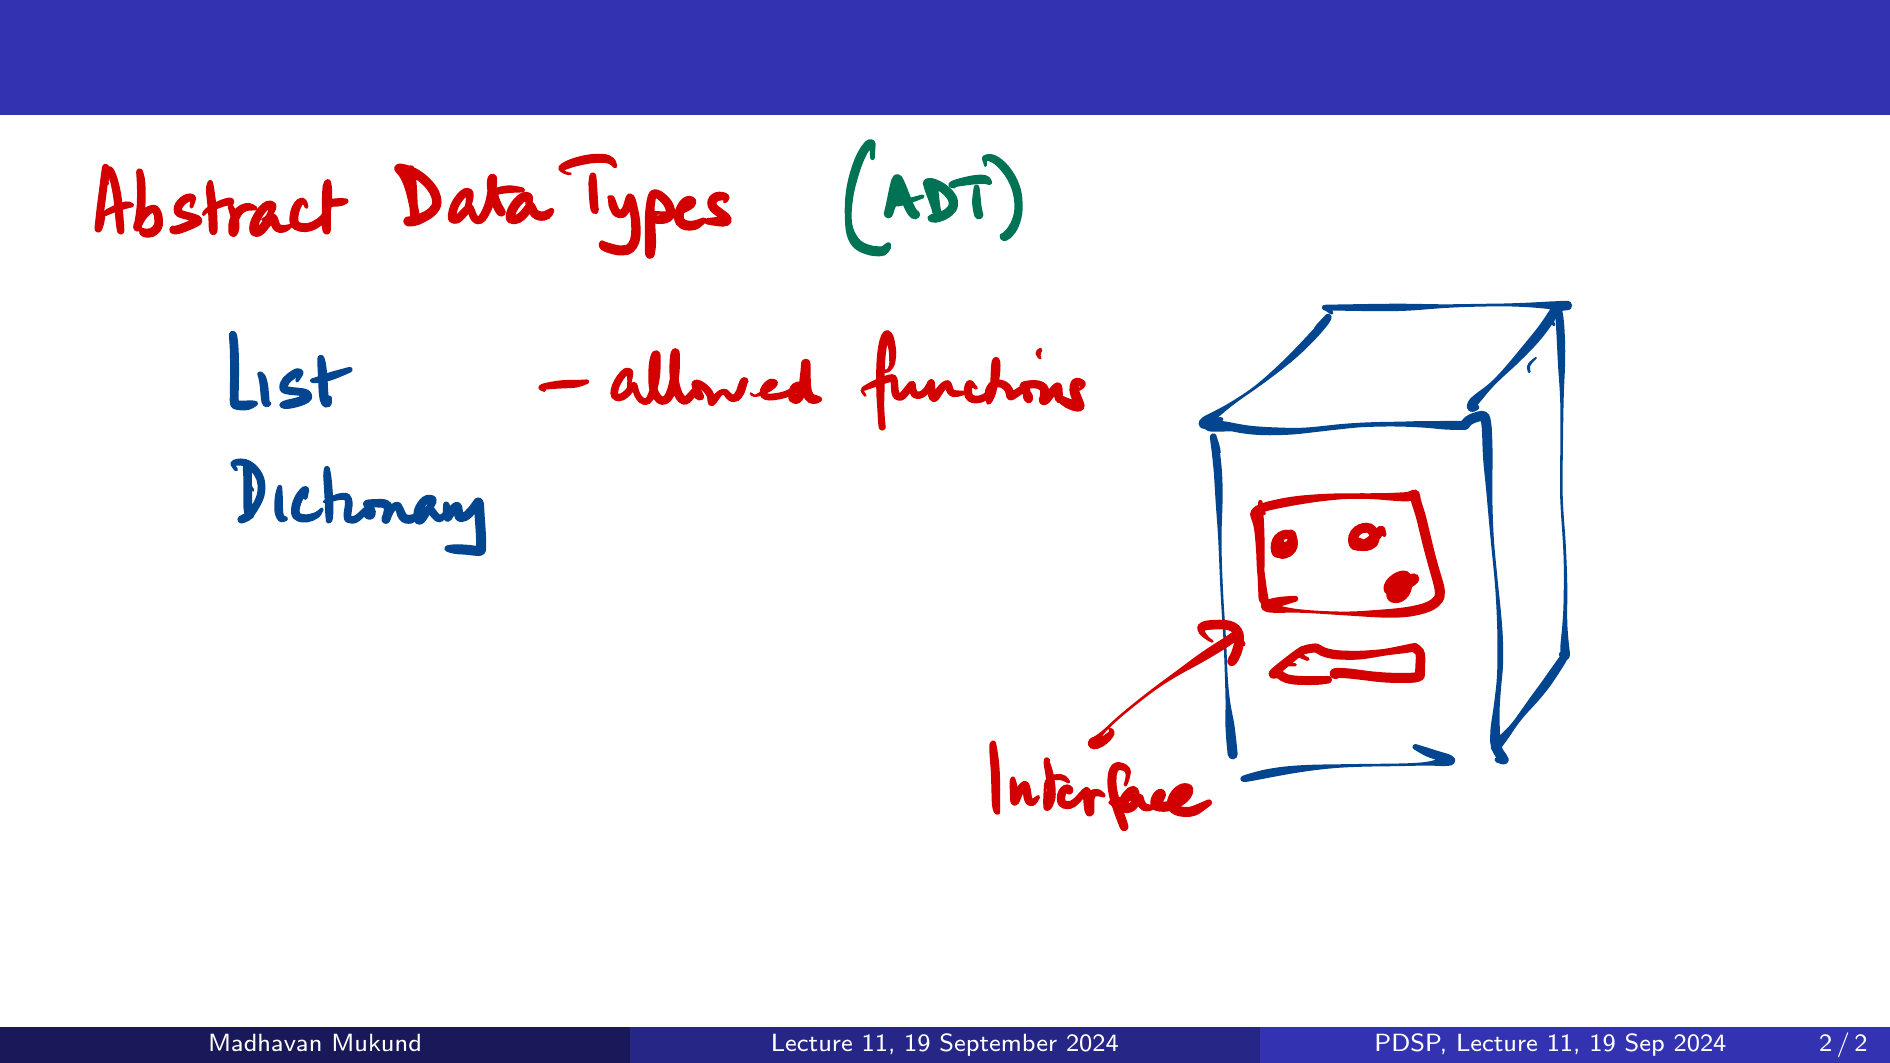 Abstract Data Types (ADT)
List - allowed functions
Dictionary
Interface
Madhavan Mukund Lecture 11, 19 September 2024 PDSP, Lecture 11, 19 Sep 2024 2 / 2